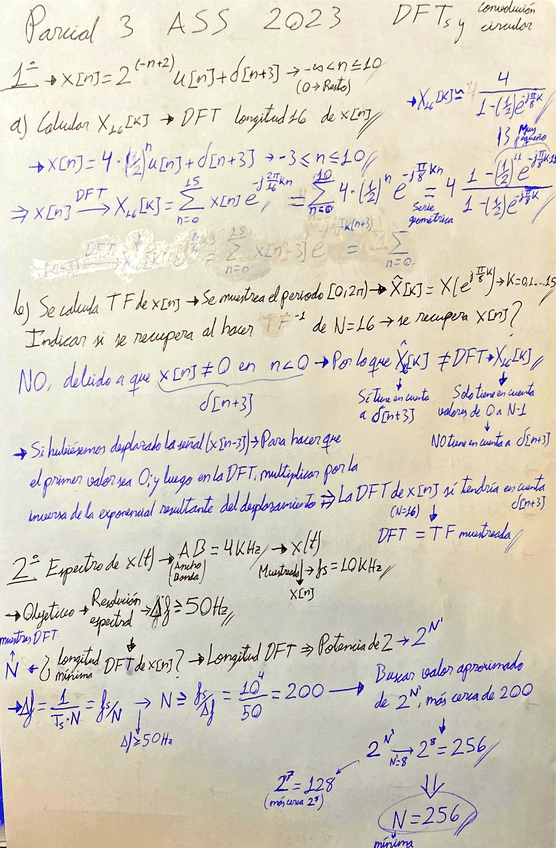 Parcial 3 ASS 2023 DFTs y convolución circular
1º → x[n] = 2^(-n+2) u[n] + δ[n+3] → -∞<n≤10
(0→Resto)
a) Calcular X₁₆[k] → DFT longitud 16 de x[n]
→ X₁₆[k] ≃ 4 / (1-(½)e^(-jπ/8 k))
→ x[n] = 4·(½)ⁿ u[n] + δ[n+3] → -3≤n≤10
Muy pequeño
⇒ x[n] DFT→ X₁₆[k] = Σ_(n=0)^15 x[n] e^(-j2π/16 kn) = Σ_(n=0)^10 4·(½)ⁿ e^(-jπ/8 kn) = 4 (1-(½)^11 e^(-jπ/8 k·11)) / (1-(½)e^(-jπ/8 k))
Serie geométrica
b) Se calcula TF de x[n] → Se muestrea el periodo [0,2π) → X̂[k] = X(e^(jπ/8 k)) → k=0,1...15
Indicar si se recupera al hacer TF⁻¹ de N=16 → se recupera x[n]?
NO, debido a que x[n]≠0 en n<0 → Por lo que X̂[k] ≠ DFT→X₁₆[k]
δ[n+3]
Sí tiene en cuenta a δ[n+3]
Solo tiene en cuenta valores de 0 a N-1
NO tiene en cuenta a δ[n+3]
→ Si hubiésemos desplazado la señal (x[n-3]) → Para hacer que
el primer valor sea 0; y luego en la DFT, multiplicar por la
inversa de la exponencial resultante del desplazamiento ⇒ La DFT de x[n] sí tendría en cuenta δ[n+3]
(N=16)
DFT = TF muestreada
2º Espectro de x(t) → AB = 4KHz → x(t)
(Ancho Banda)
Muestreado → fs = 10KHz
x[n]
→ Objetivo → Resolución espectral → Δf ≥ 50Hz
muestras DFT
N ← ¿longitud mínima DFT de x[n]? → Longitud DFT ⇒ Potencia de 2 → 2^N'
→ Δf = 1/(Ts·N) = fs/N → N ≥ fs/Δf = 10⁴/50 = 200 → Buscar valor aproximado
de 2^N', más cerca de 200
Δf ≥ 50Hz
2^N' N'=8→ 2⁸ = 256
2⁷ = 128
(más cerca 2⁸)
N = 256
mínima